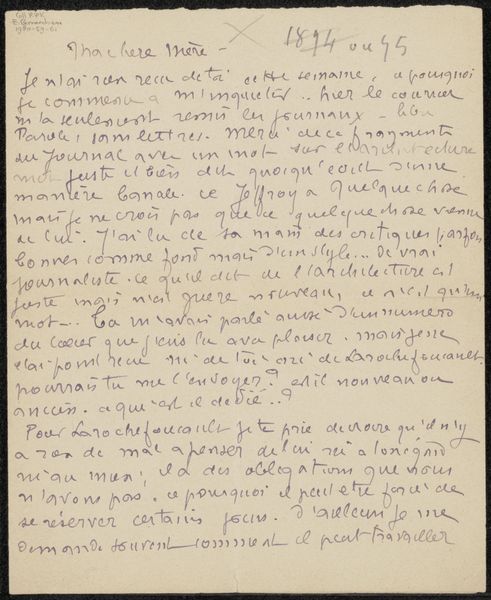 Coll RPK
E. Bernard
1894 ou 95
Ma chere Mère -
Je n'ai rien recu de toi cette semaine, a pourquoi
je commence a m'inquieter .. hier le courrier
m'a seulement remis les journaux -
Parole, sans lettres. Merci de ce fragment
du Journal avec un mot sur l'architecture
mot juste et bien dit quoiqu'ecrit d'une
manière banale. ce Jeffroy a quelque chose
mais je ne crois pas que ce quelque chose vienne
de lui. J'ai lu de sa main des critiques parfois
bonnes comme fond mais d'un style... de vrai
journaliste. ce qu'il dit de l'architecture est
juste mais n'est guère nouveau, ce n'est qu'un
mot... Tu m'avais parlé aussi d'un numero
du Cœur que j'eus lu avec plaisir. mais je ne
l'ai point recu ni de toi ni de Larochefoucault.
pourrais tu me l'envoyer? est il nouveau ou
ancien. a qui est il dedié..?
Pour Larochefoucault je te prie de croire qu'il n'y
a rien de mal a penser de lui ni a ton égard
ni au mien; il a des obligations que nous
n'avons pas. c'est pourquoi il peut etre forcé de
se réserver certains jours. D'ailleurs je me
demande souvent comment il peut travailler